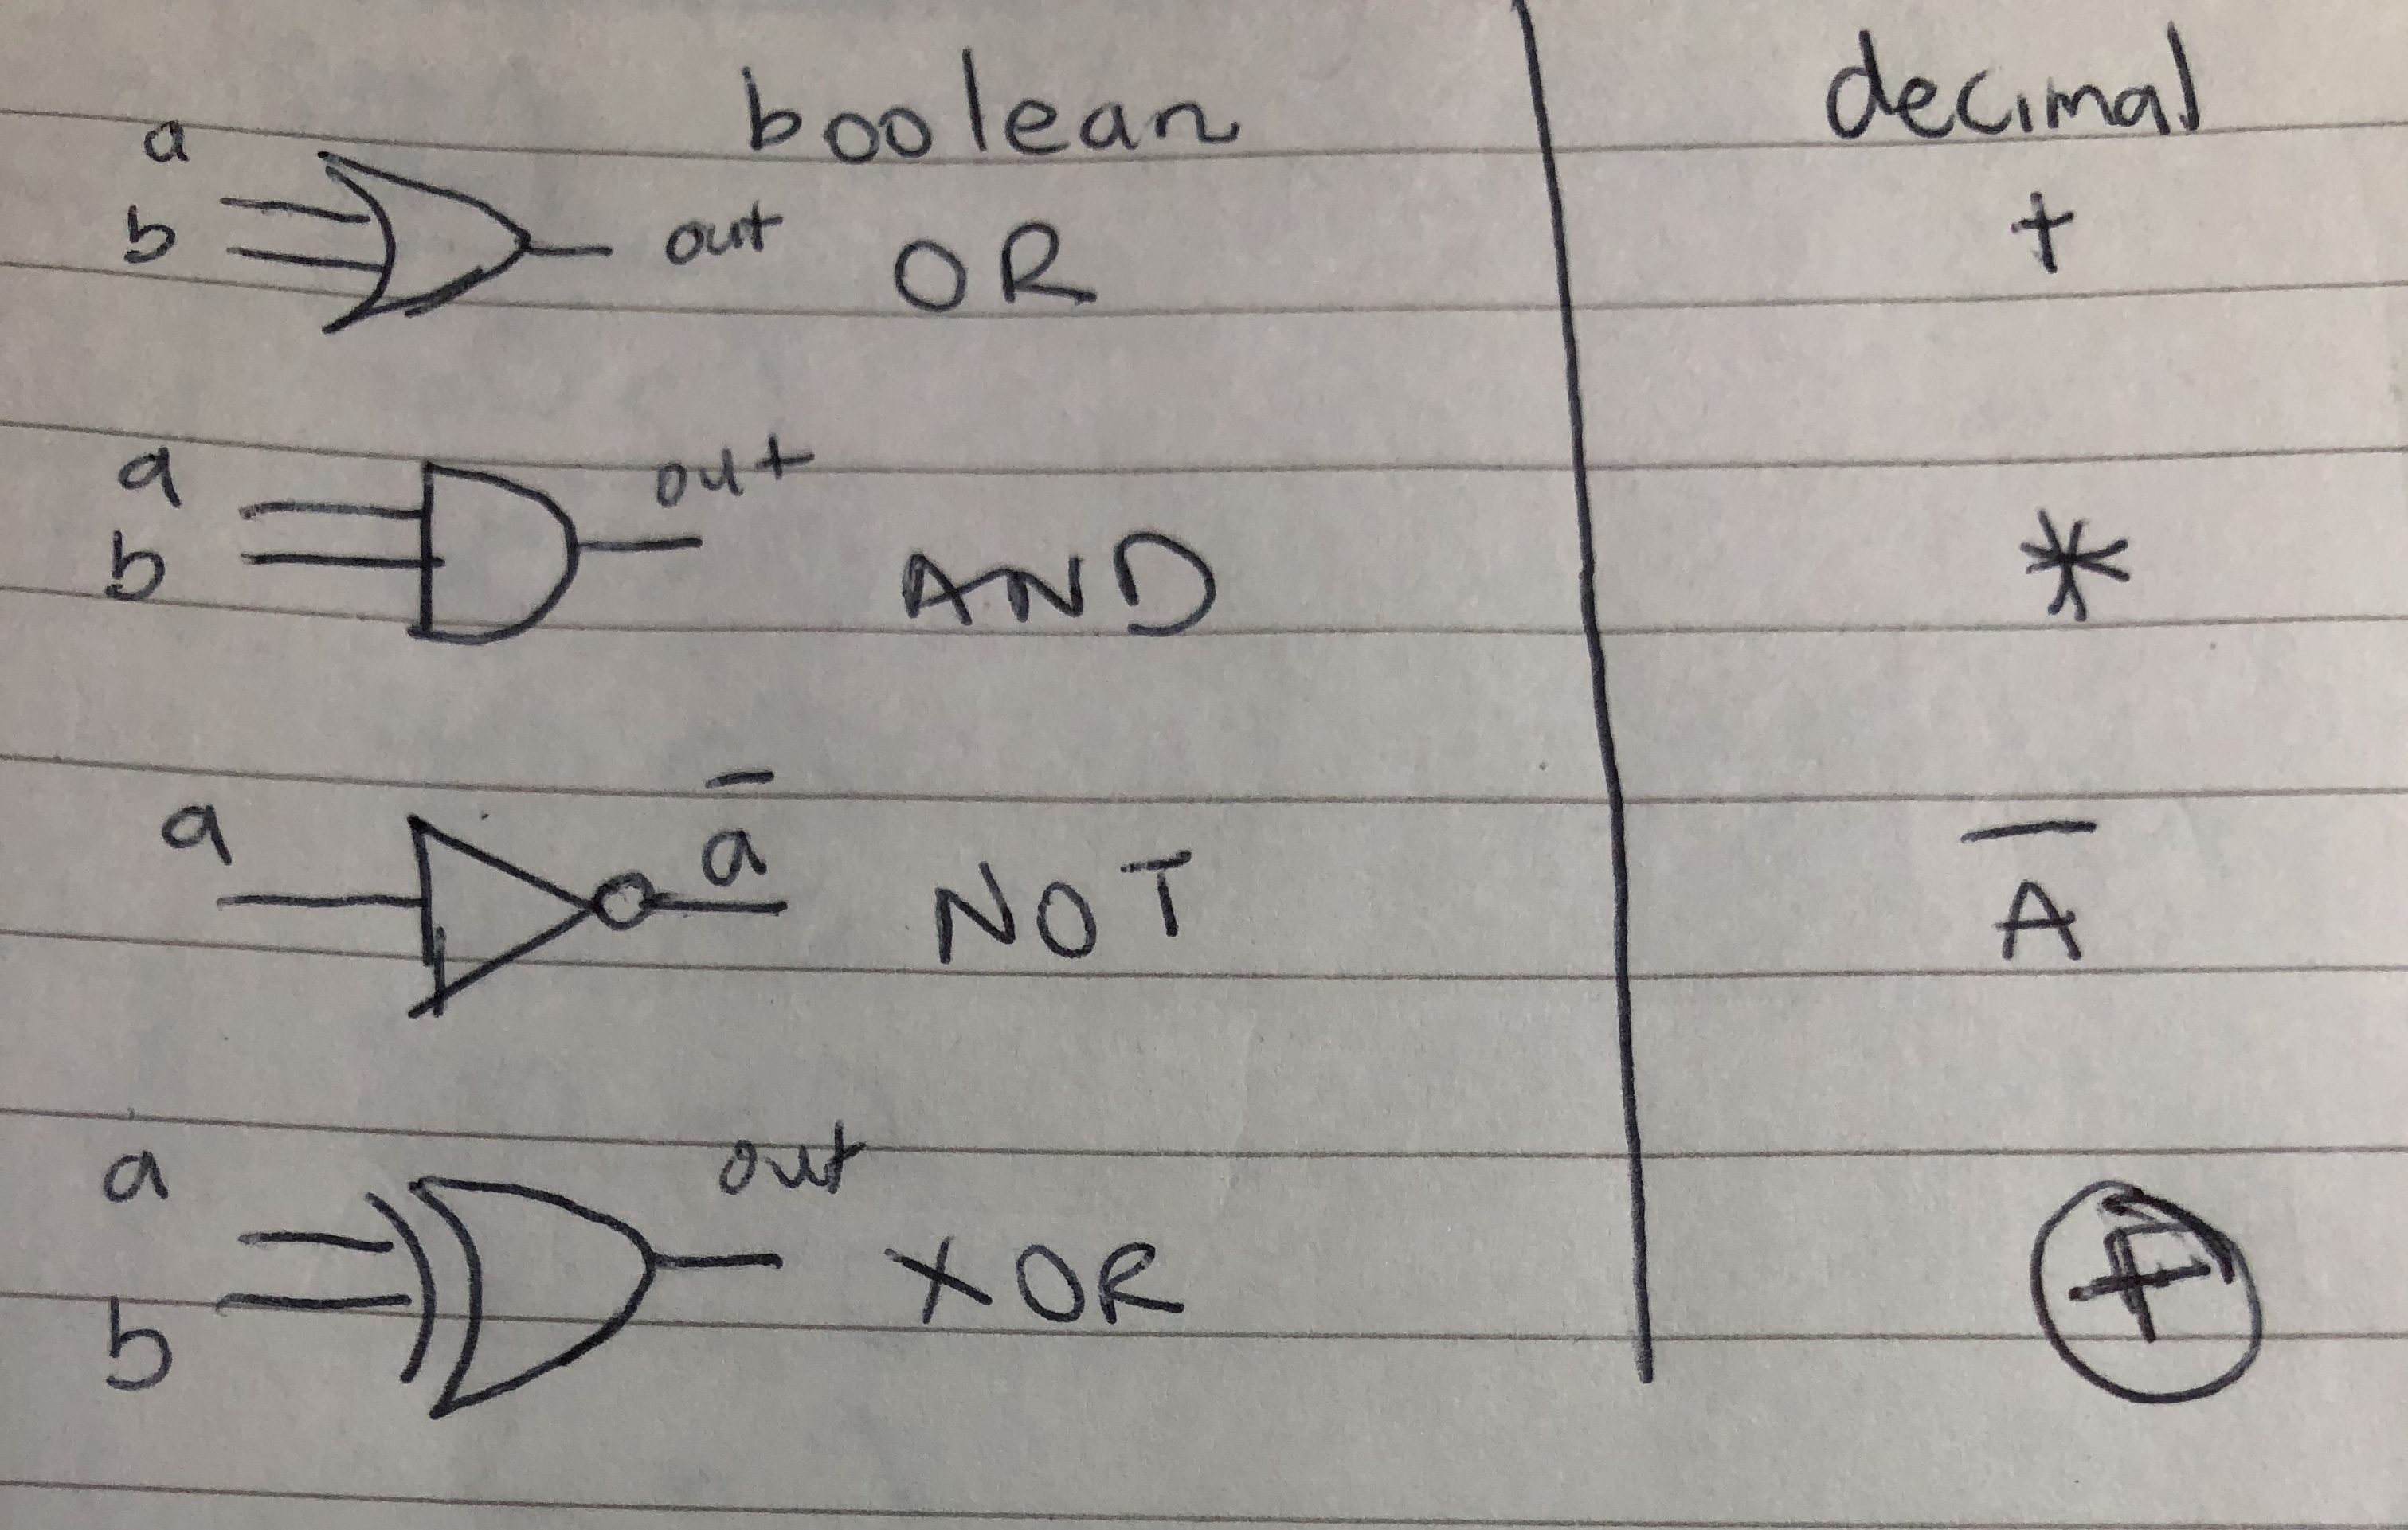 boolean decimal
a
b out OR +
a out
b AND *
a a̅ NOT A̅
a out
b XOR ⊕